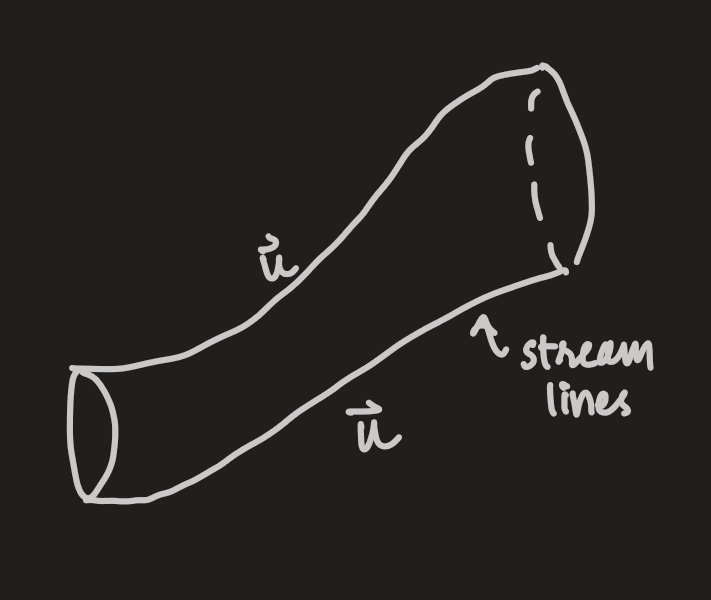 u⃗
u⃗
stream
lines